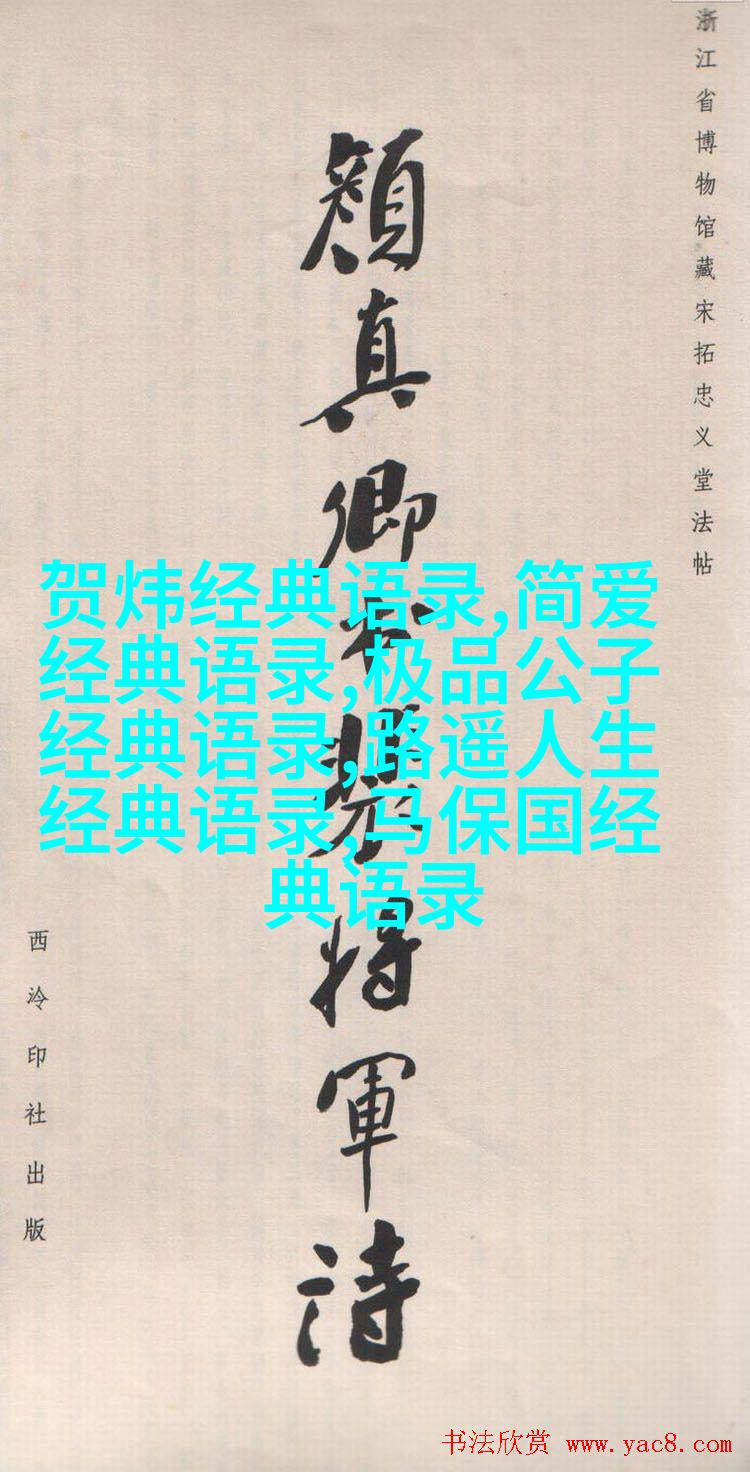 浙江省博物馆藏宋拓忠义堂法帖
颜真卿书裴将军诗
西泠印社出版
贺炜经典语录,简爱
经典语录,极品公子
经典语录,路遥人生
经典语录,马保国经
典语录
书法欣赏 www.yac8.com